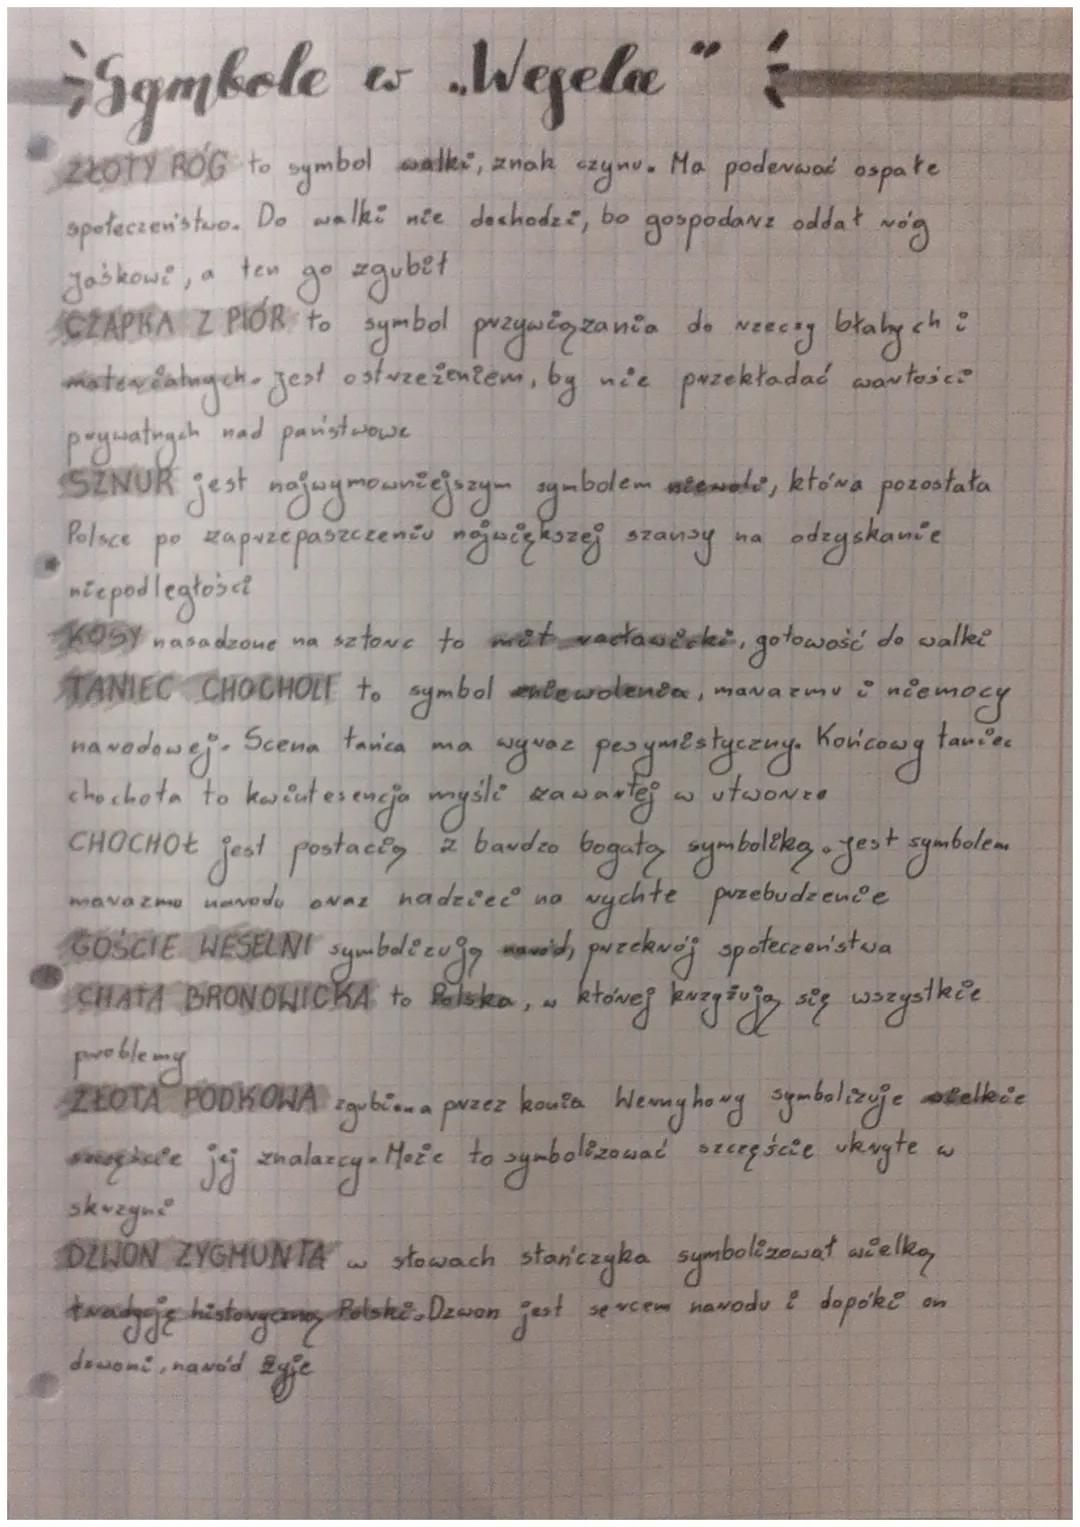 Symbole w „Weselu”
ZŁOTY RÓG to symbol walki, znak czynu. Ma poderwać ospałe
społeczeństwo. Do walki nie dochodzi, bo gospodarz oddał róg
Jaśkowi, a ten go zgubił
CZAPKA Z PIÓR to symbol przywiązania do rzeczy błahych i
materialnych. Jest ostrzeżeniem, by nie przekładać wartości
prywatnych nad państwowe
SZNUR jest najwymowniejszym symbolem niewoli, która pozostała
Polsce po zaprzepaszczeniu największej szansy na odzyskanie
niepodległości
KOSY nasadzone na sztorc to mit racławicki, gotowość do walki
TANIEC CHOCHOLI to symbol zniewolenia, marazmu i niemocy
narodowej. Scena tańca ma wyraz pesymistyczny. Końcowy taniec
chochoła to kwintesencja myśli zawartej w utworze
CHOCHOŁ jest postacią z bardzo bogatą symboliką. Jest symbolem
marazmu narodu oraz nadziei na rychłe przebudzenie
GOŚCIE WESELNI symbolizują naród, przekrój społeczeństwa
CHATA BRONOWICKA to Polska, w której krzyżują się wszystkie
problemy
ZŁOTA PODKOWA zgubiona przez konia Wernyhory symbolizuje wielkie
szczęście jej znalazcy. Może to symbolizować szczęście ukryte w
skrzyni
DZWON ZYGMUNTA w słowach stańczyka symbolizował wielką
tradycję historyczną Polski. Dzwon jest sercem narodu i dopóki on
dzwoni, naród żyje